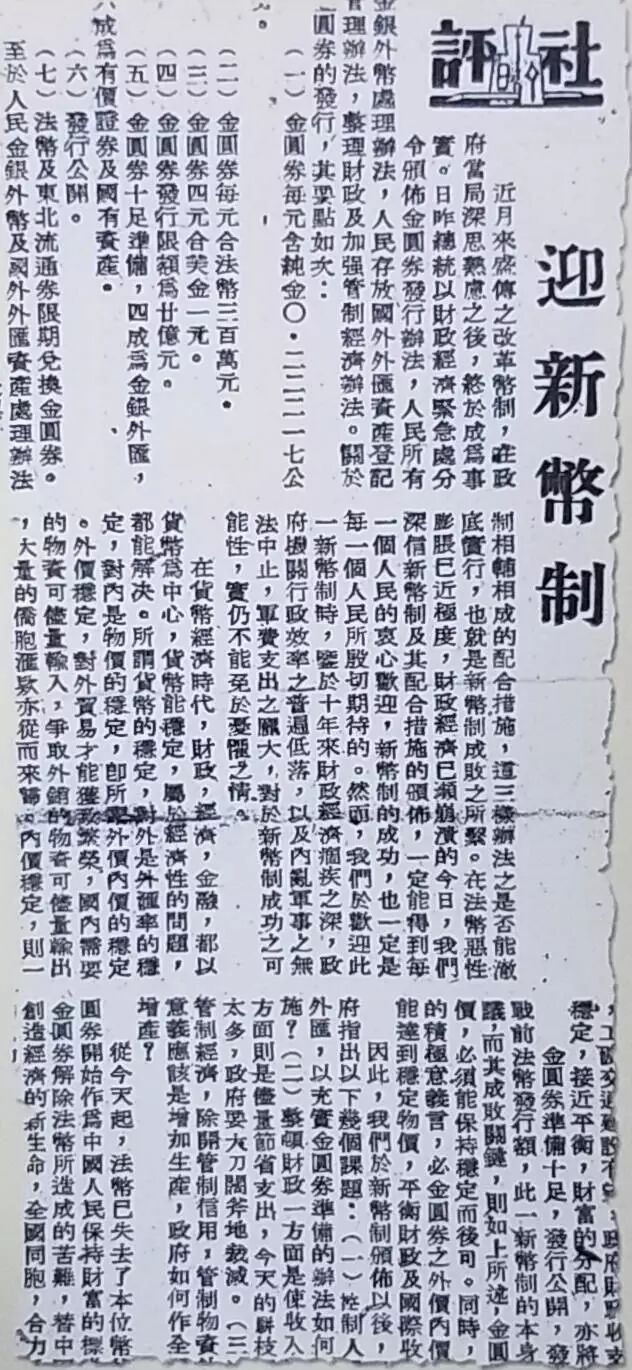 社評
迎新幣制
近月來盛傳之改革幣制，在政
府當局深思熟慮之後，終於成爲事
實。日昨總統以財政經濟緊急處分
令頒佈金圓券發行辦法，人民所有
金銀外幣處理辦法，人民存放國外外匯資產登記
管理辦法，整理財政及加强管制經濟辦法。關於
金圓券的發行，其要點如次：
（一）金圓券每元含純金〇・二二二一七公
。
（二）金圓券每元合法幣三百萬元。
（三）金圓券四元合美金一元。
（四）金圓券發行限額爲廿億元。
（五）金圓券十足準備，四成爲金銀外匯，
六成爲有價證券及國有資產。
（六）發行公開。
（七）法幣及東北流通券限期兌換金圓券。
至於人民金銀外幣及國外外匯資產處理辦法
制相輔相成的配合措施，這三樣辦法之是否能澈
底實行，也就是新幣制成敗之所繫。在法幣惡性
膨脹已近極度，財政經濟已瀕崩潰的今日，我們
深信新幣制及其配合措施的頒佈，一定能得到每
一個人民的衷心歡迎，新幣制的成功，也一定是
每一個人民所殷切期待的。然而，我們於歡迎此
一新幣制時，鑒於十年來財政經濟痼疾之深，政
府機關行政效率之普遍低落，以及內亂軍事之無
法中止，軍費支出之龐大，對於新幣制成功之可
能性，實仍不能至於憂懼之情。
在貨幣經濟時代，財政，經濟，金融，都以
貨幣爲中心，貨幣能穩定，屬於經濟性的問題，
都能解決。所謂貨幣的穩定，對外是外匯率的穩
定，對內是物價的穩定，卽所謂外價內價的穩定
。外價穩定，對外貿易才能獲致繁榮，國內需要
的物資可儘量輸入，爭取外銷的物資可儘量輸出
，大量的僑胞滙欵亦從而來歸。內價穩定，則一
，工商交通建設有，政府財政收支
穩定，接近平衡，財富的分配，亦將
金圓券準備十足，發行公開，發
戰前法幣發行額，此一新幣制的本身
議，而其成敗關鍵，則如上所述，金圓
價，必須能保持穩定而後可。同時，
的積極意義言，必金圓券之外價內價
能達到穩定物價，平衡財政及國際收
因此，我們於新幣制頒佈以後，
府指出以下幾個課題：（一）控制人
外匯，以充實金圓券準備的辦法如何
施？（二）整頓財政一方面是使收入
方面則是儘量節省支出，今天的駢枝
太多，政府要大刀闊斧地裁減。（三
管制經濟，除開管制信用，管制物資
意義應該是增加生產，政府如何作全
增產？
從今天起，法幣已失去了本位幣
圓券開始作爲中國人民保持財富的標
金圓券解除法幣所造成的苦難，替中
創造經濟的新生命，全國同胞，合力